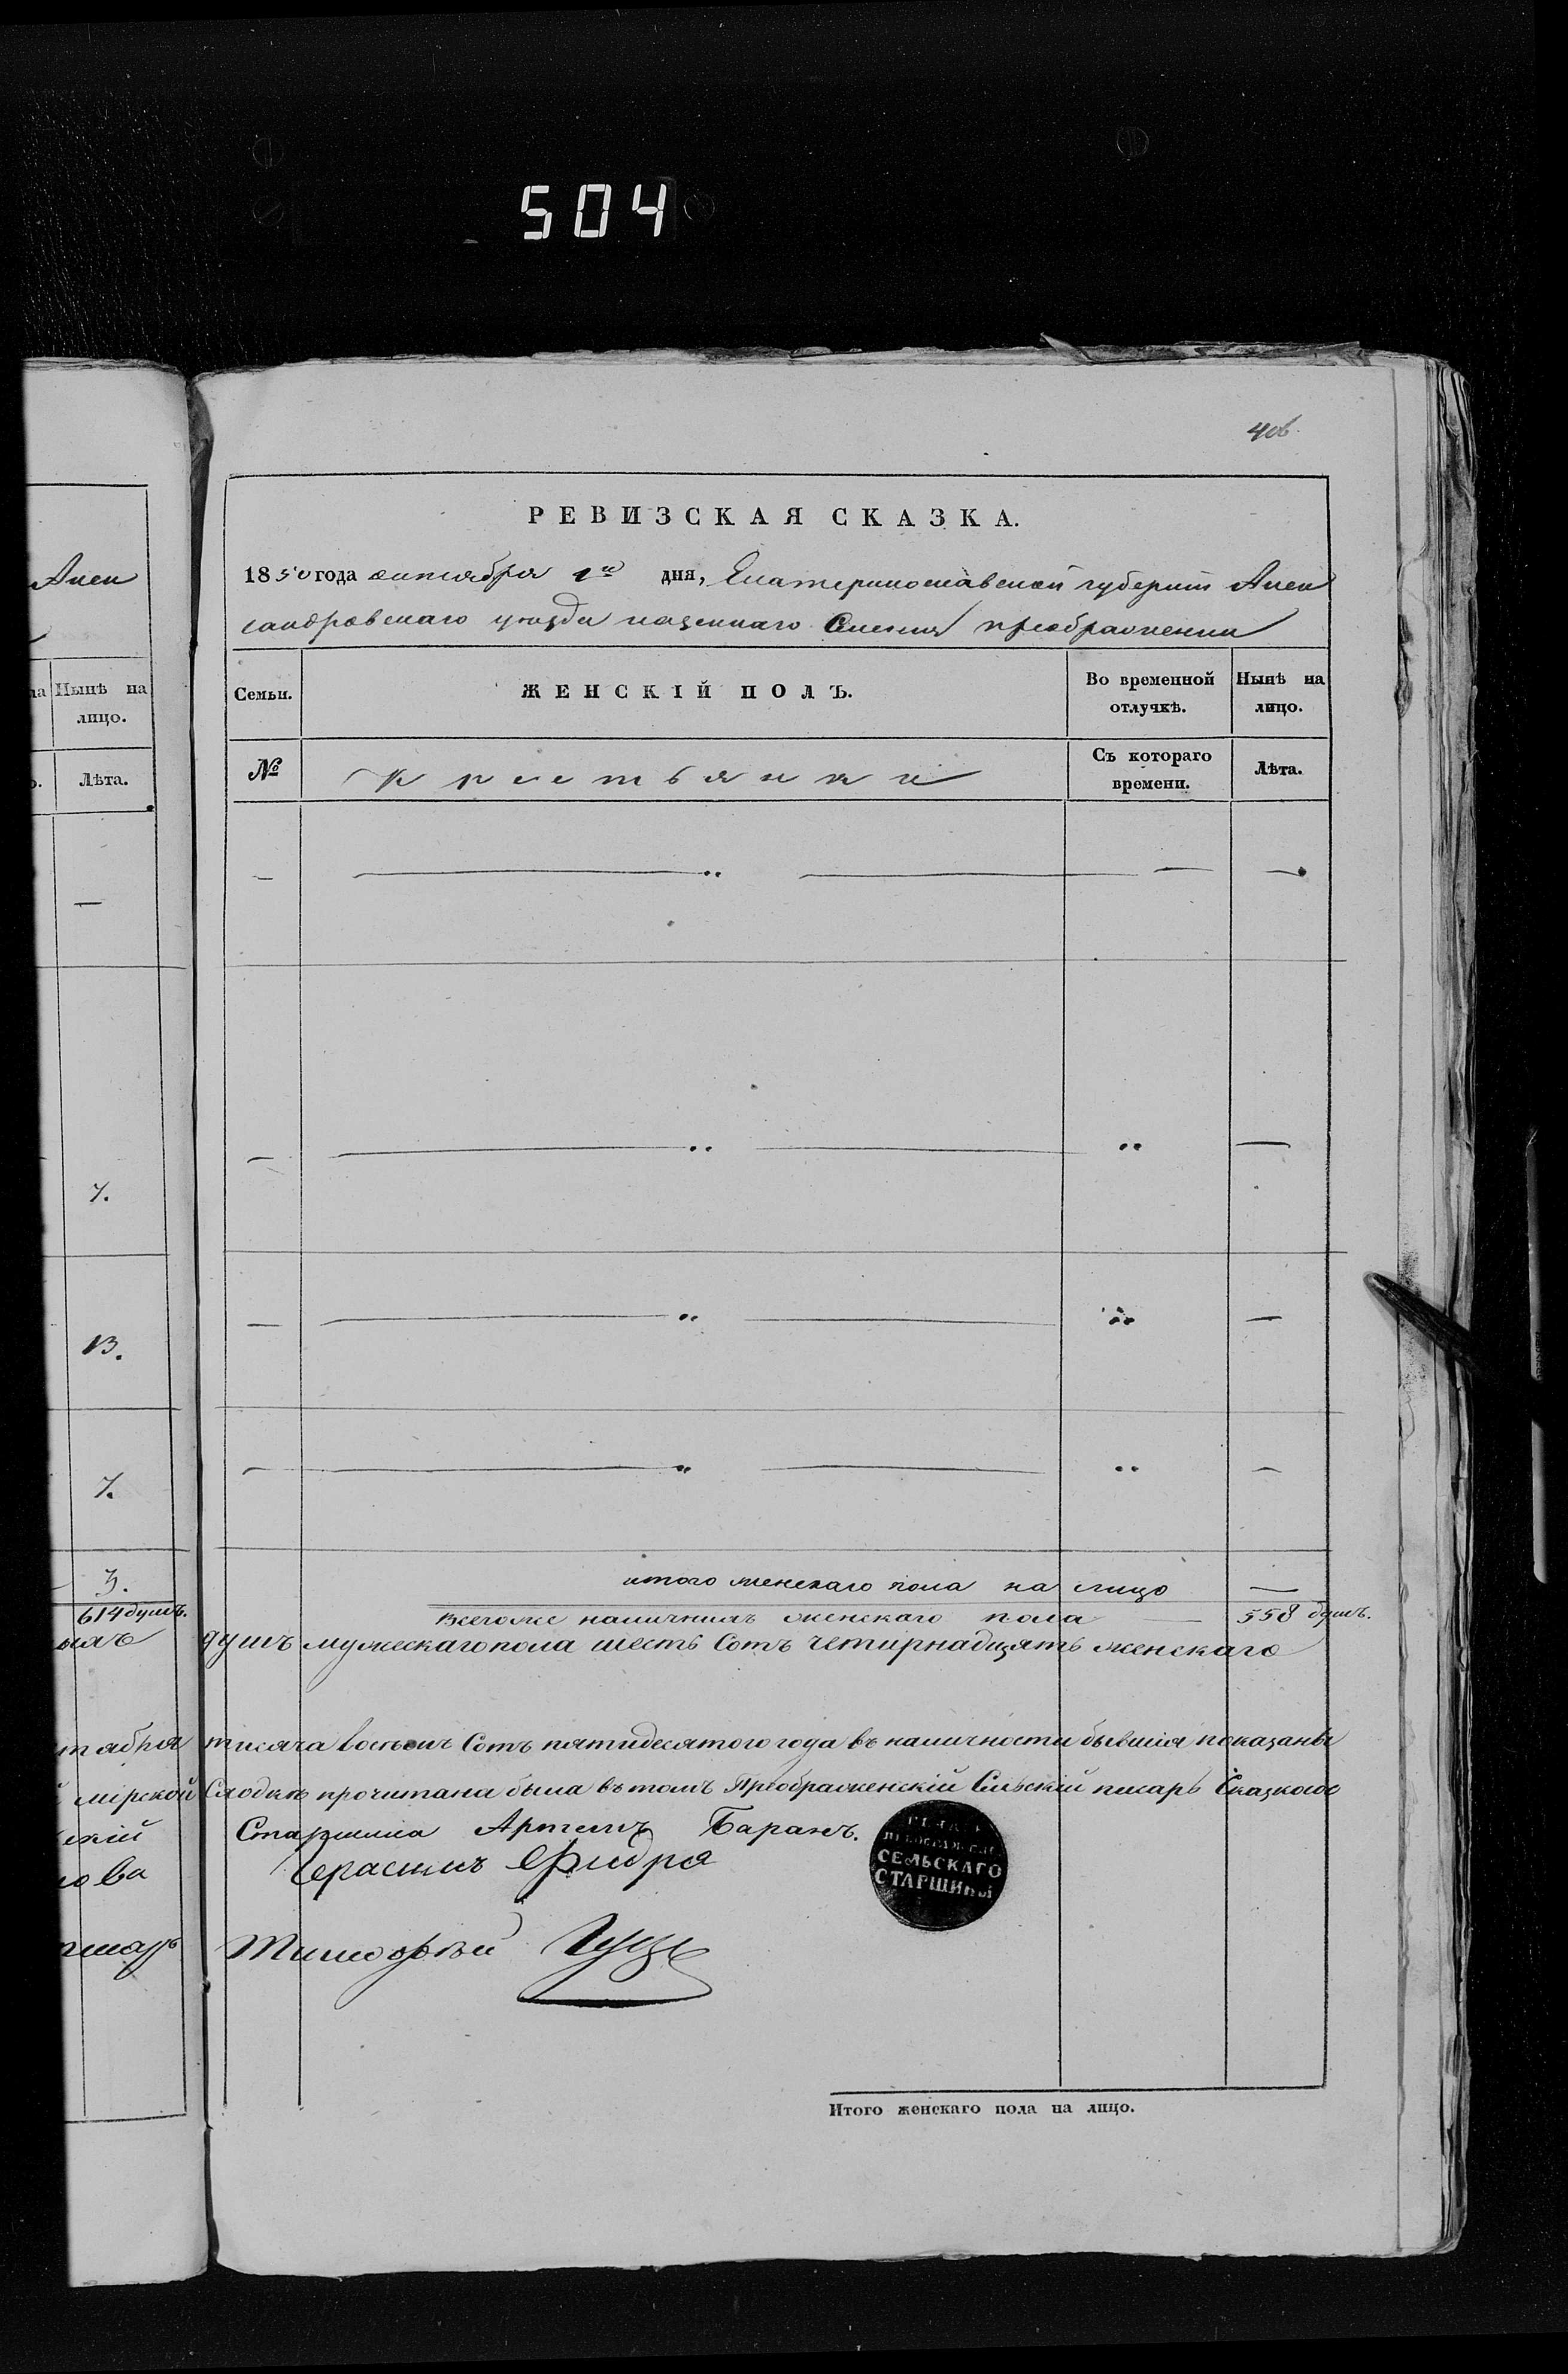 504
406.
РЕВИЗСКАЯ СКАЗКА.
1850 года октября 1го дня, Екатеринославской губернии Алек
сандровскаго уезда казеннаго Селения преображенки
Семьи.
ЖЕНСКІЙ ПОЛЪ.
Во временной отлучкѣ.
Нынѣ на лицо.
№
Крестьянки
Съ котораго времени.
Лѣта.
итого женскаго пола на лицо —
Всегоже наличныхъ женскаго пола — 558 душъ.
душъ мужескаго пола шесть Сотъ четирнадцять женскаго
тисяча восъемъ Сотъ пятидесятого года въ наличности бывшія показаны
Сходкѣ прочитана была въ томъ Преображенскій Сильскій писарь
Старшина Артемъ Баранъ.
Герасимъ Фидря
Тимофѣй
СЕЛЬСКАГО
СТАРШИНЫ
Итого женскаго пола на лицо.
Алек
Нынѣ на
лицо.
Лѣта.
7.
13.
7.
3.
614 душъ.
тября
мірской
скій